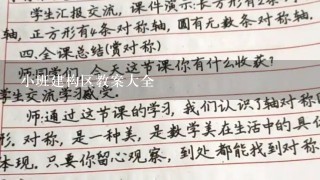 学生汇报交流，课件演示:长方形有2条
轴，正方形有4条对称轴，圆有无数条对称轴.
四.全课总结(赏对称)
今天这节课你有什么收获?
小班建构区教案大全
学生交流学习感受.
师:通过这节课的学习，我们认识了轴对称
形.对称，是一种美，是数学美在生活中的具
体现.只要你留心观察，到处都能找到对称